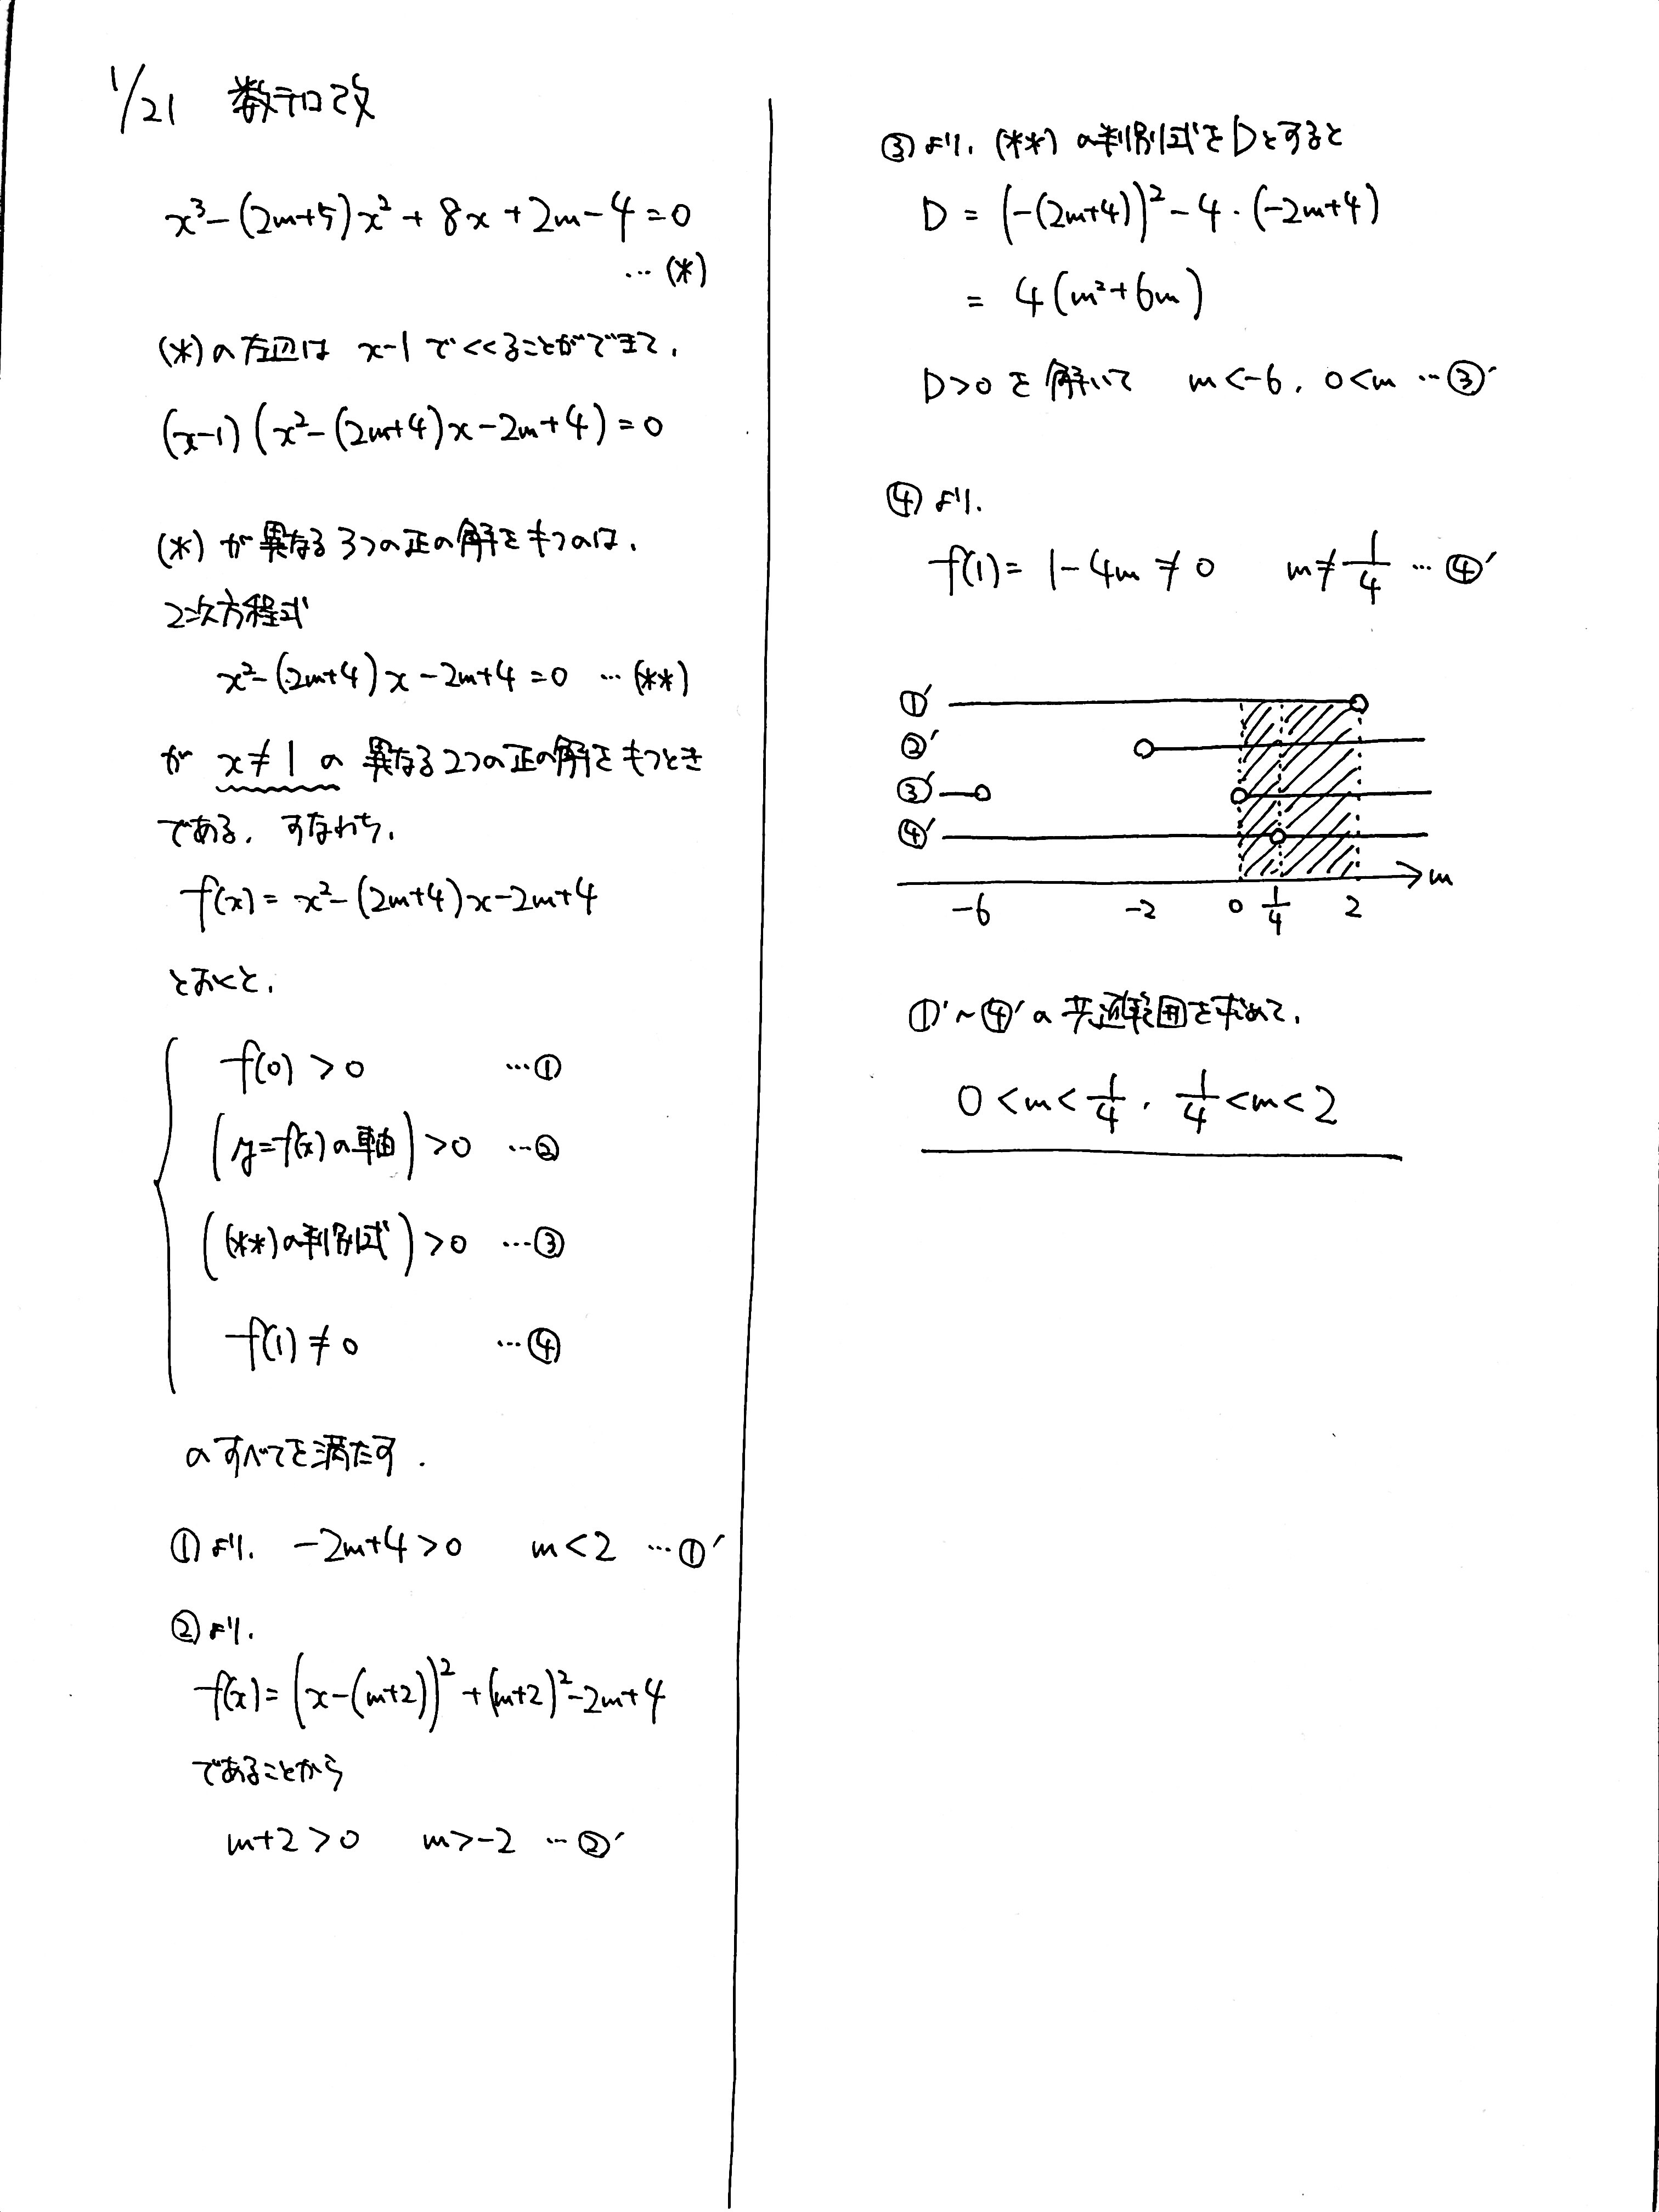 1/21 数テロ改
x³-(2m+5)x²+8x+2m-4=0
…(*)
(*)の左辺は x-1でくくることができて,
(x-1)(x²-(2m+4)x-2m+4)=0
(*)が異なる3つの正の解をもつのは,
2次方程式
x²-(2m+4)x-2m+4=0 …(**)
が x≠1の異なる2つの正の解をもつとき
である. すなわち,
f(x)=x²-(2m+4)x-2m+4
とおくと,
f(0)>0 …①
(y=f(x)の軸)>0 …②
((**)の判別式)>0 …③
f(1)≠0 …④
のすべてを満たす.
①より, -2m+4>0 m<2 …①′
②より,
f(x)=(x-(m+2))²+(m+2)²-2m+4
であることから
m+2>0 m>-2 …②′
③より, (**)の判別式をDとすると
D=(-(2m+4))²-4・(-2m+4)
=4(m²+6m)
D>0を解いて m<-6, 0<m …③′
④より,
f(1)=1-4m≠0 m≠1/4 …④′
①′
②′
③′
④′
m
-6 -2 0 1/4 2
①′~④′の共通範囲を求めて,
0<m<1/4, 1/4<m<2